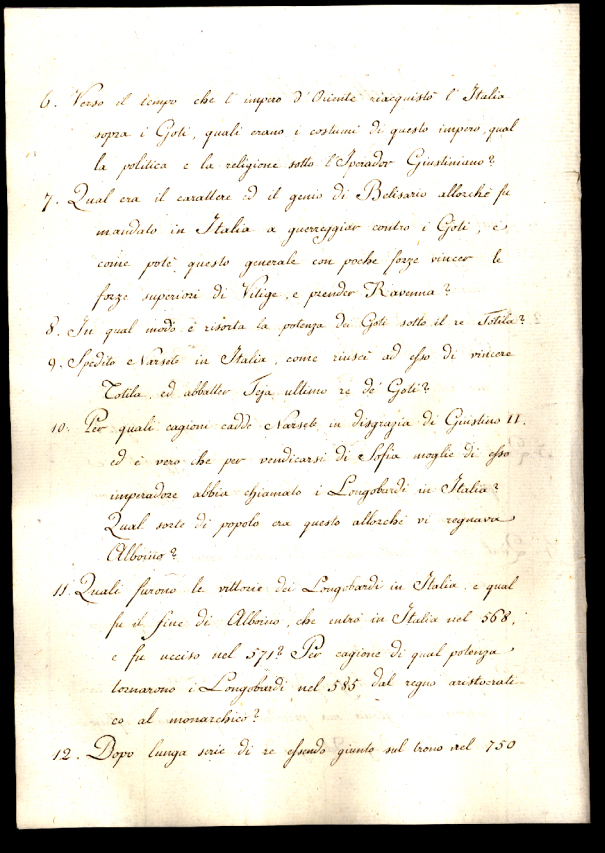 6. Verso il tempo che l'impero d'Oriente riacquistò l'Italia
sopra i Goti, quali erano i costumi di questo impero, qual
la politica e la religione sotto l'Iperador Giustiniano?
7. Qual era il carattere ed il genio di Belisario allorchè fu
mandato in Italia a guerreggiar contro i Goti, e
come potè questo generale con poche forze vincer le
forze superiori di Vitige, e prender Ravenna?
8. In qual modo è risorta la potenza dei Goti sotto il re Totila?
9. Spedito Narsete in Italia, come riuscì ad esso di vincere
Totila, ed abbatter Teja ultimo re de' Goti?
10. Per quali cagioni cadde Narsete in disgrazia di Giustino II.
ed è vero che per vendicarsi di Sofia moglie di esso
imperadore abbia chiamato i Longobardi in Italia?
Qual sorte di popolo era questo allorchè vi regnava
Alboino?
11. Quali furono le vittorie dei Longobardi in Italia, e qual
fu il fine di Alboino, che entrò in Italia nel 568,
e fu ucciso nel 571? Per cagione di qual potenza
tornarono i Longobardi nel 585 dal regno aristocrati-
co al monarchico?
12. Dopo lunga serie di re essendo giunto sul trono nel 750